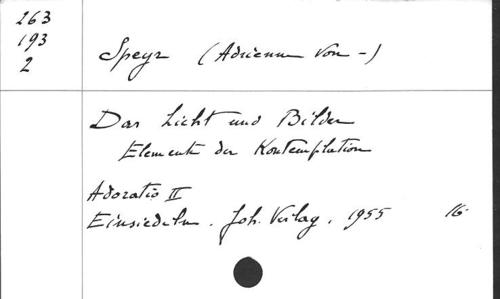 263
193
2
Speyr (Adrienne von -)
Das Licht und Bilder
Elemente der Kontemplation
Adoratio II
Einsiedeln. Joh. Verlag. 1955 16-